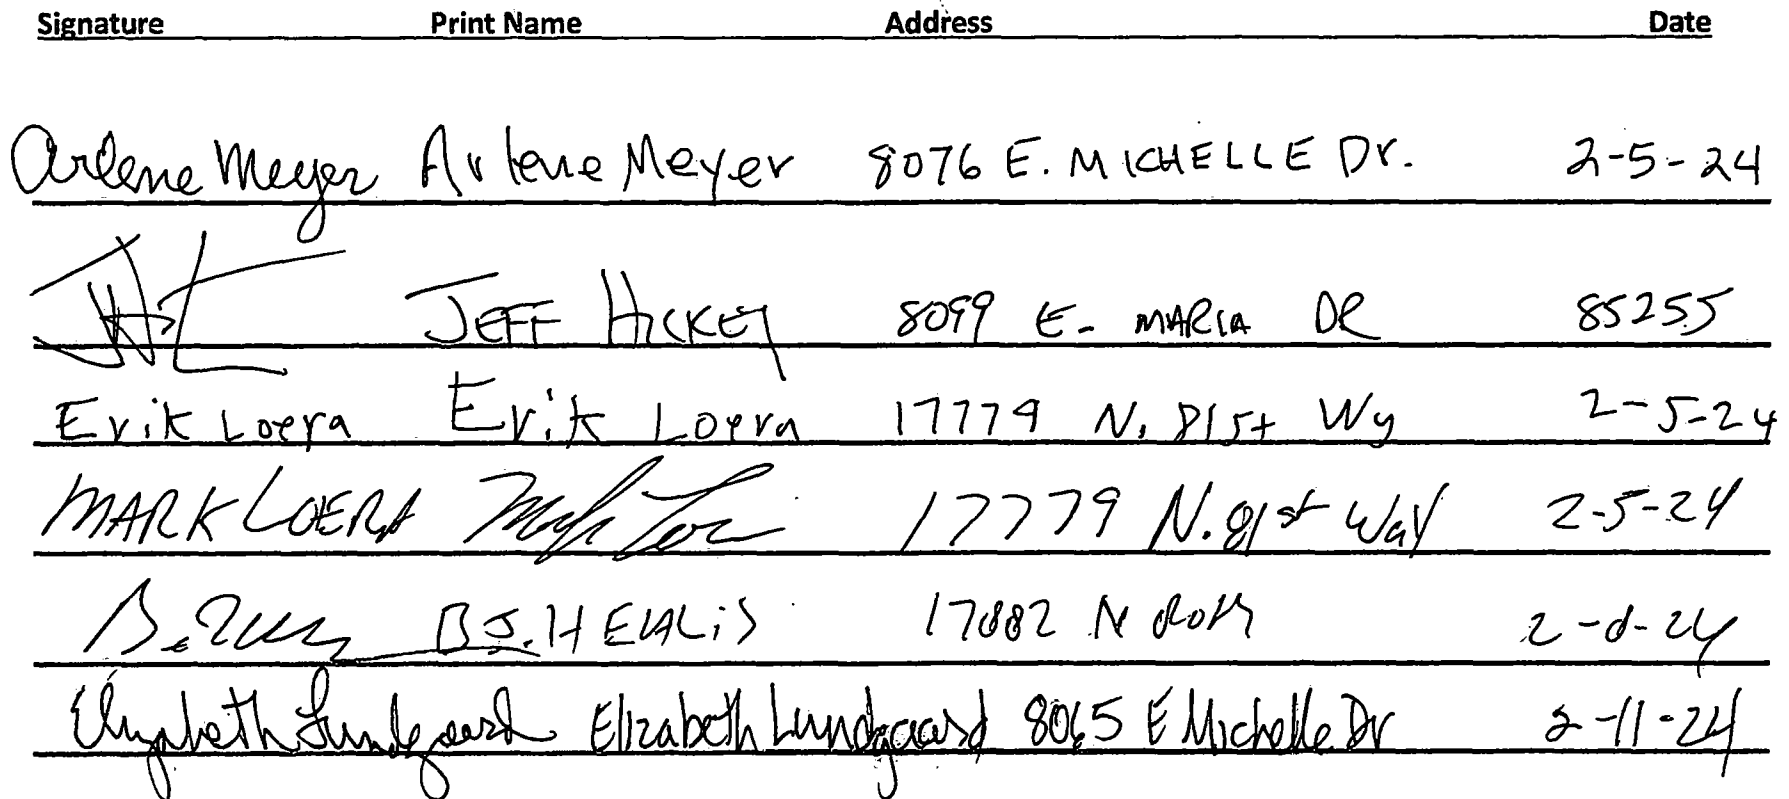 Signature Print Name Address Date
Arlene Meyer Arlene Meyer 8076 E. MICHELLE Dr. 2-5-24
JEFF HICKEY 8099 E. MARIA DR 85255
Erik Loera Erik Loera 17779 N. 81st Wy 2-5-24
MARK LOERA Mark Loera 17779 N. 81st Way 2-5-24
B.J. 17882 N 2-8-24
Elizabeth Lundgaard Elizabeth Lundgaard 8065 E Michelle Dr 2-11-24